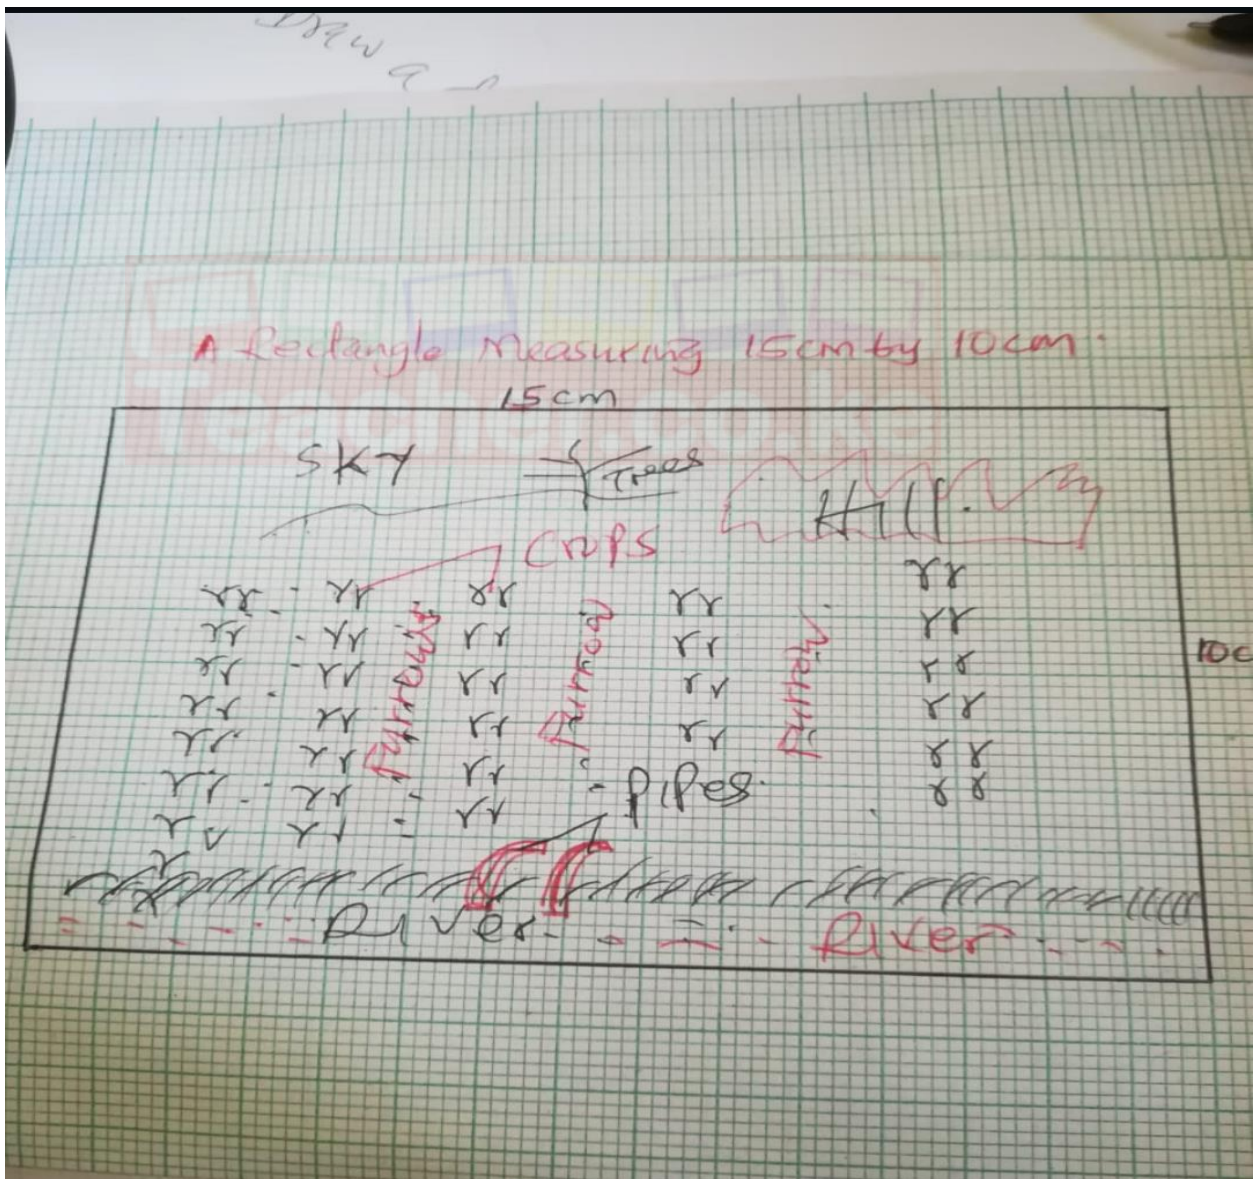 Draw
a
A Rectangle Measuring 15cm by 10cm.
Teacher.co.ke
15cm
SKY
Trees
Hill.
Crops
furrows
furrow
furrow
10c
pipes.
River
River